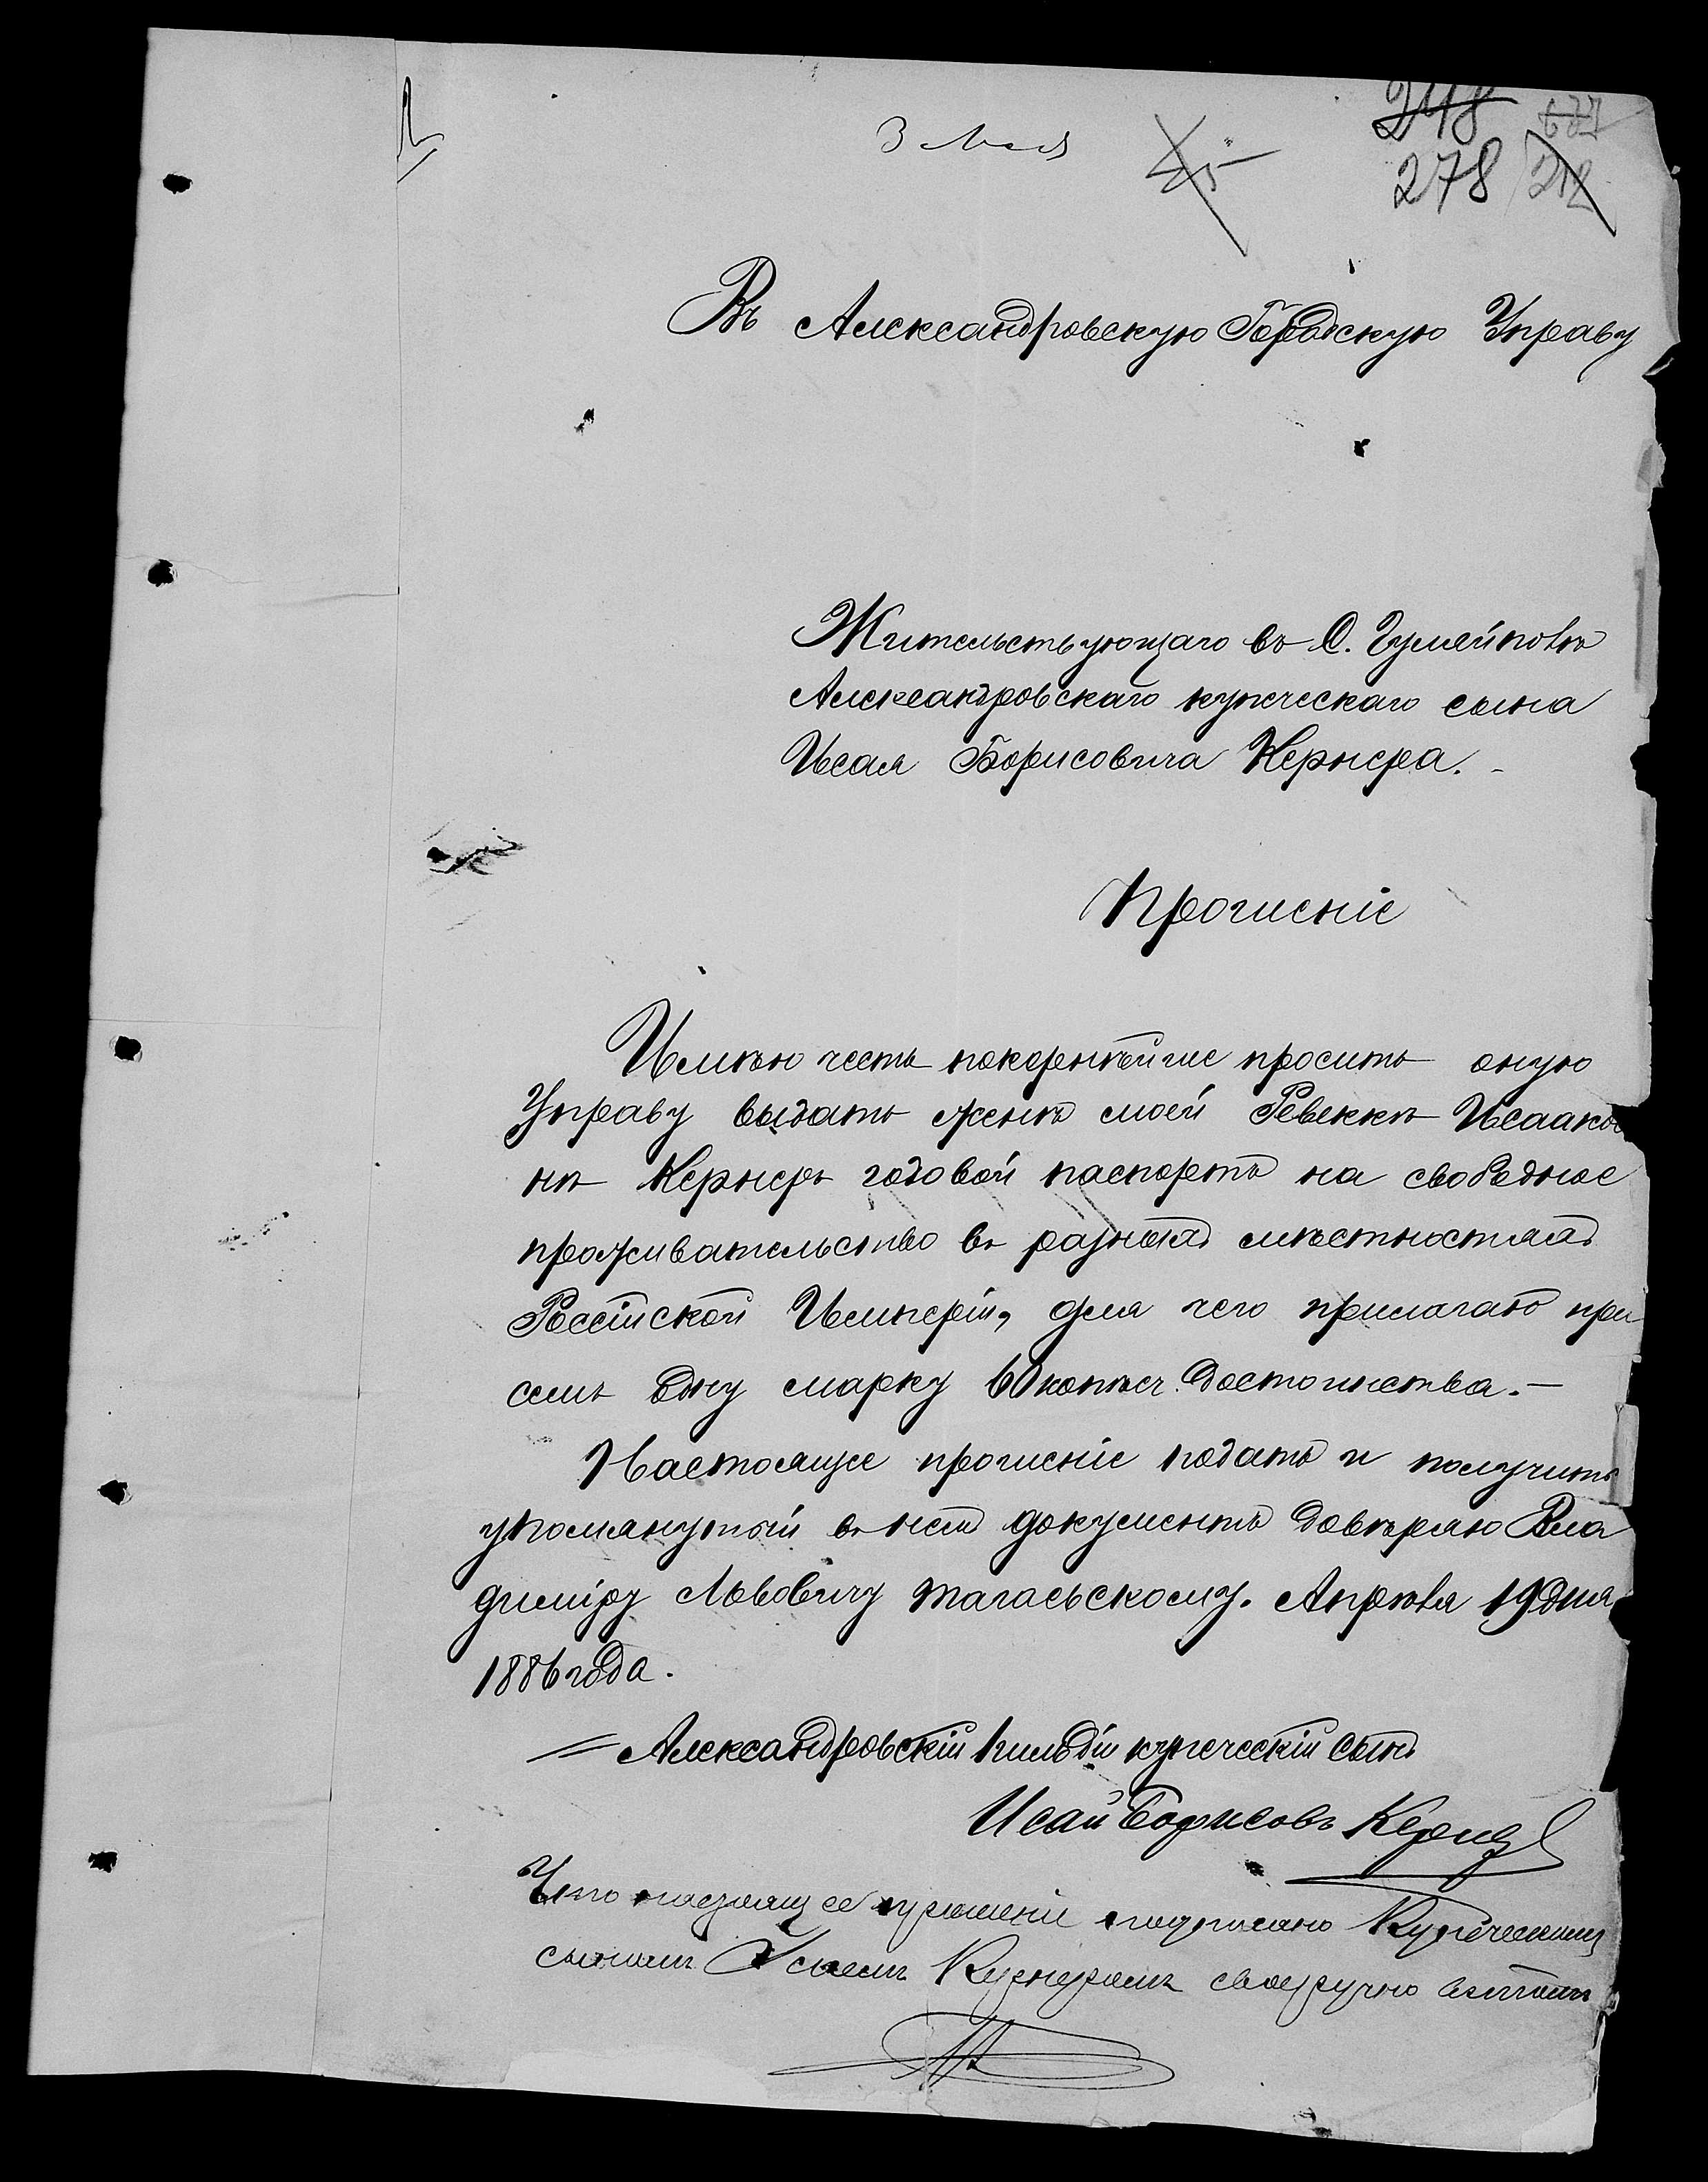 3 Мая
45
248
278
Въ Александровскую Городскую Управу
Жительствующаго въ С. Гуляйполѣ
Александровскаго купеческаго сына
Исая Борисовича Кернера.
Прошеніе
Имѣю честь покорнѣйше просить оную
Управу выдать женѣ моей Ревеккѣ Исааков
нѣ Кернеръ годовой паспортъ на свободное
проживательство въ разныхъ мѣстностяхъ
Россійской Имперіи, для чего прилагаю при
семъ одну марку 60 копѣеч. достоинства.-
Настоящее прошеніе подать и получить
упомянутый въ немъ документъ довѣряю Вла
диміру Львовичу Тагаевскому. Апрѣля 19 дня
1886 года.
Александровскій 1 гильдіи купеческій сынъ
Исай Борисовъ Кернеръ
Что настоящее прошеніе подписано Купеческимъ
сыномъ Исаемъ Кернеромъ своеручно въ томъ